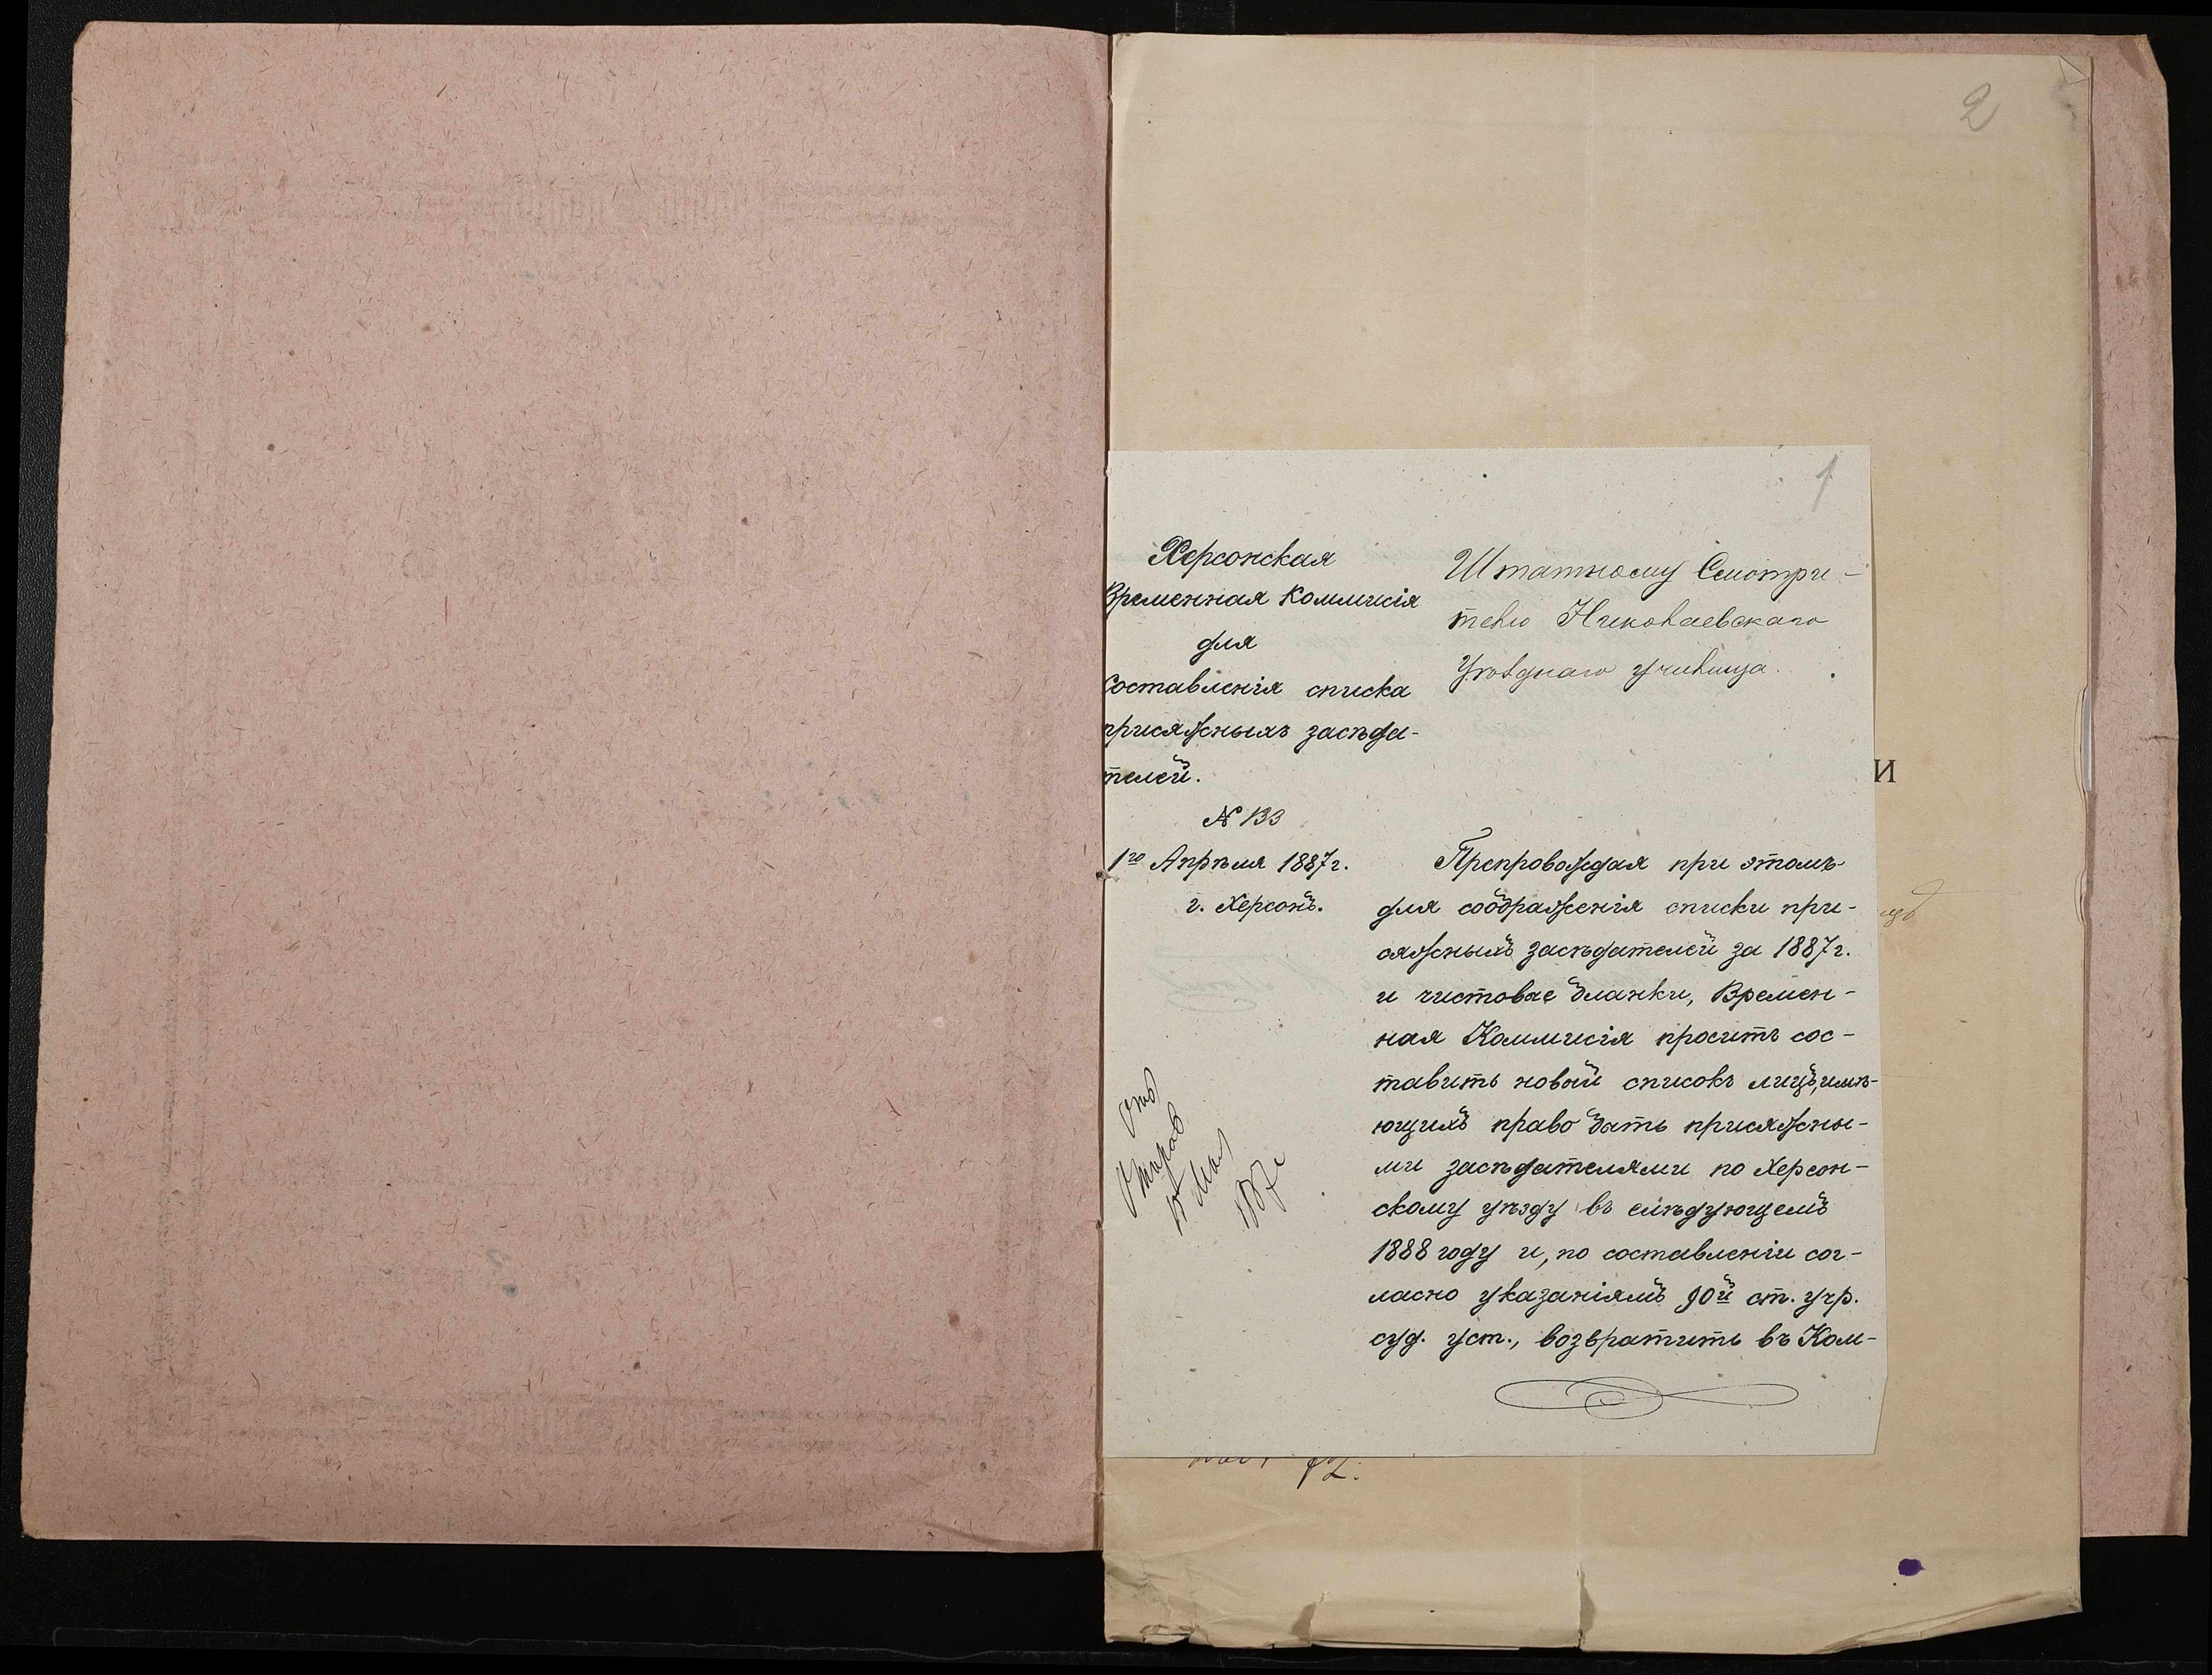 2
1
Херсонская
Временная Коммисія
для
составленія списка
присяжныхъ засѣда-
телей.
№ 133
1го Апрѣля 1887 г.
г. Херсонъ.
Штатному Смотри-
телю Николаевскаго
Уѣзднаго училища.
Препровождая при этомъ
для соображенія списки при-
сяжныхъ засѣдателей за 1887 г.
и чистовые бланки, Времен-
ная Коммисія проситъ сос-
тавить новый списокъ лицъ, имѣ-
ющихъ право быть присяжны-
ми засѣдателями по Херсон-
скому уѣзду въ слѣдующемъ
1888 году и, по составленіи сог-
ласно указаніямъ 90й ст. учр.
суд. уст., возвратить въ Ком-
Мая
1887 г
И